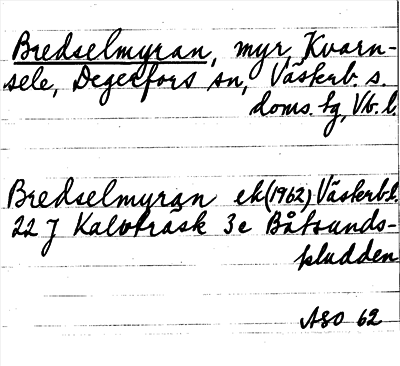 Bredselmyran, myr, Kvarn-
sele, Degerfors sn, Västerb. s.
doms. tg, Vb. l.
Bredselmyran ek (1962) Västerb. l.
22 J Kalvträsk 3c Båtsunds-
pludden
ASO 62